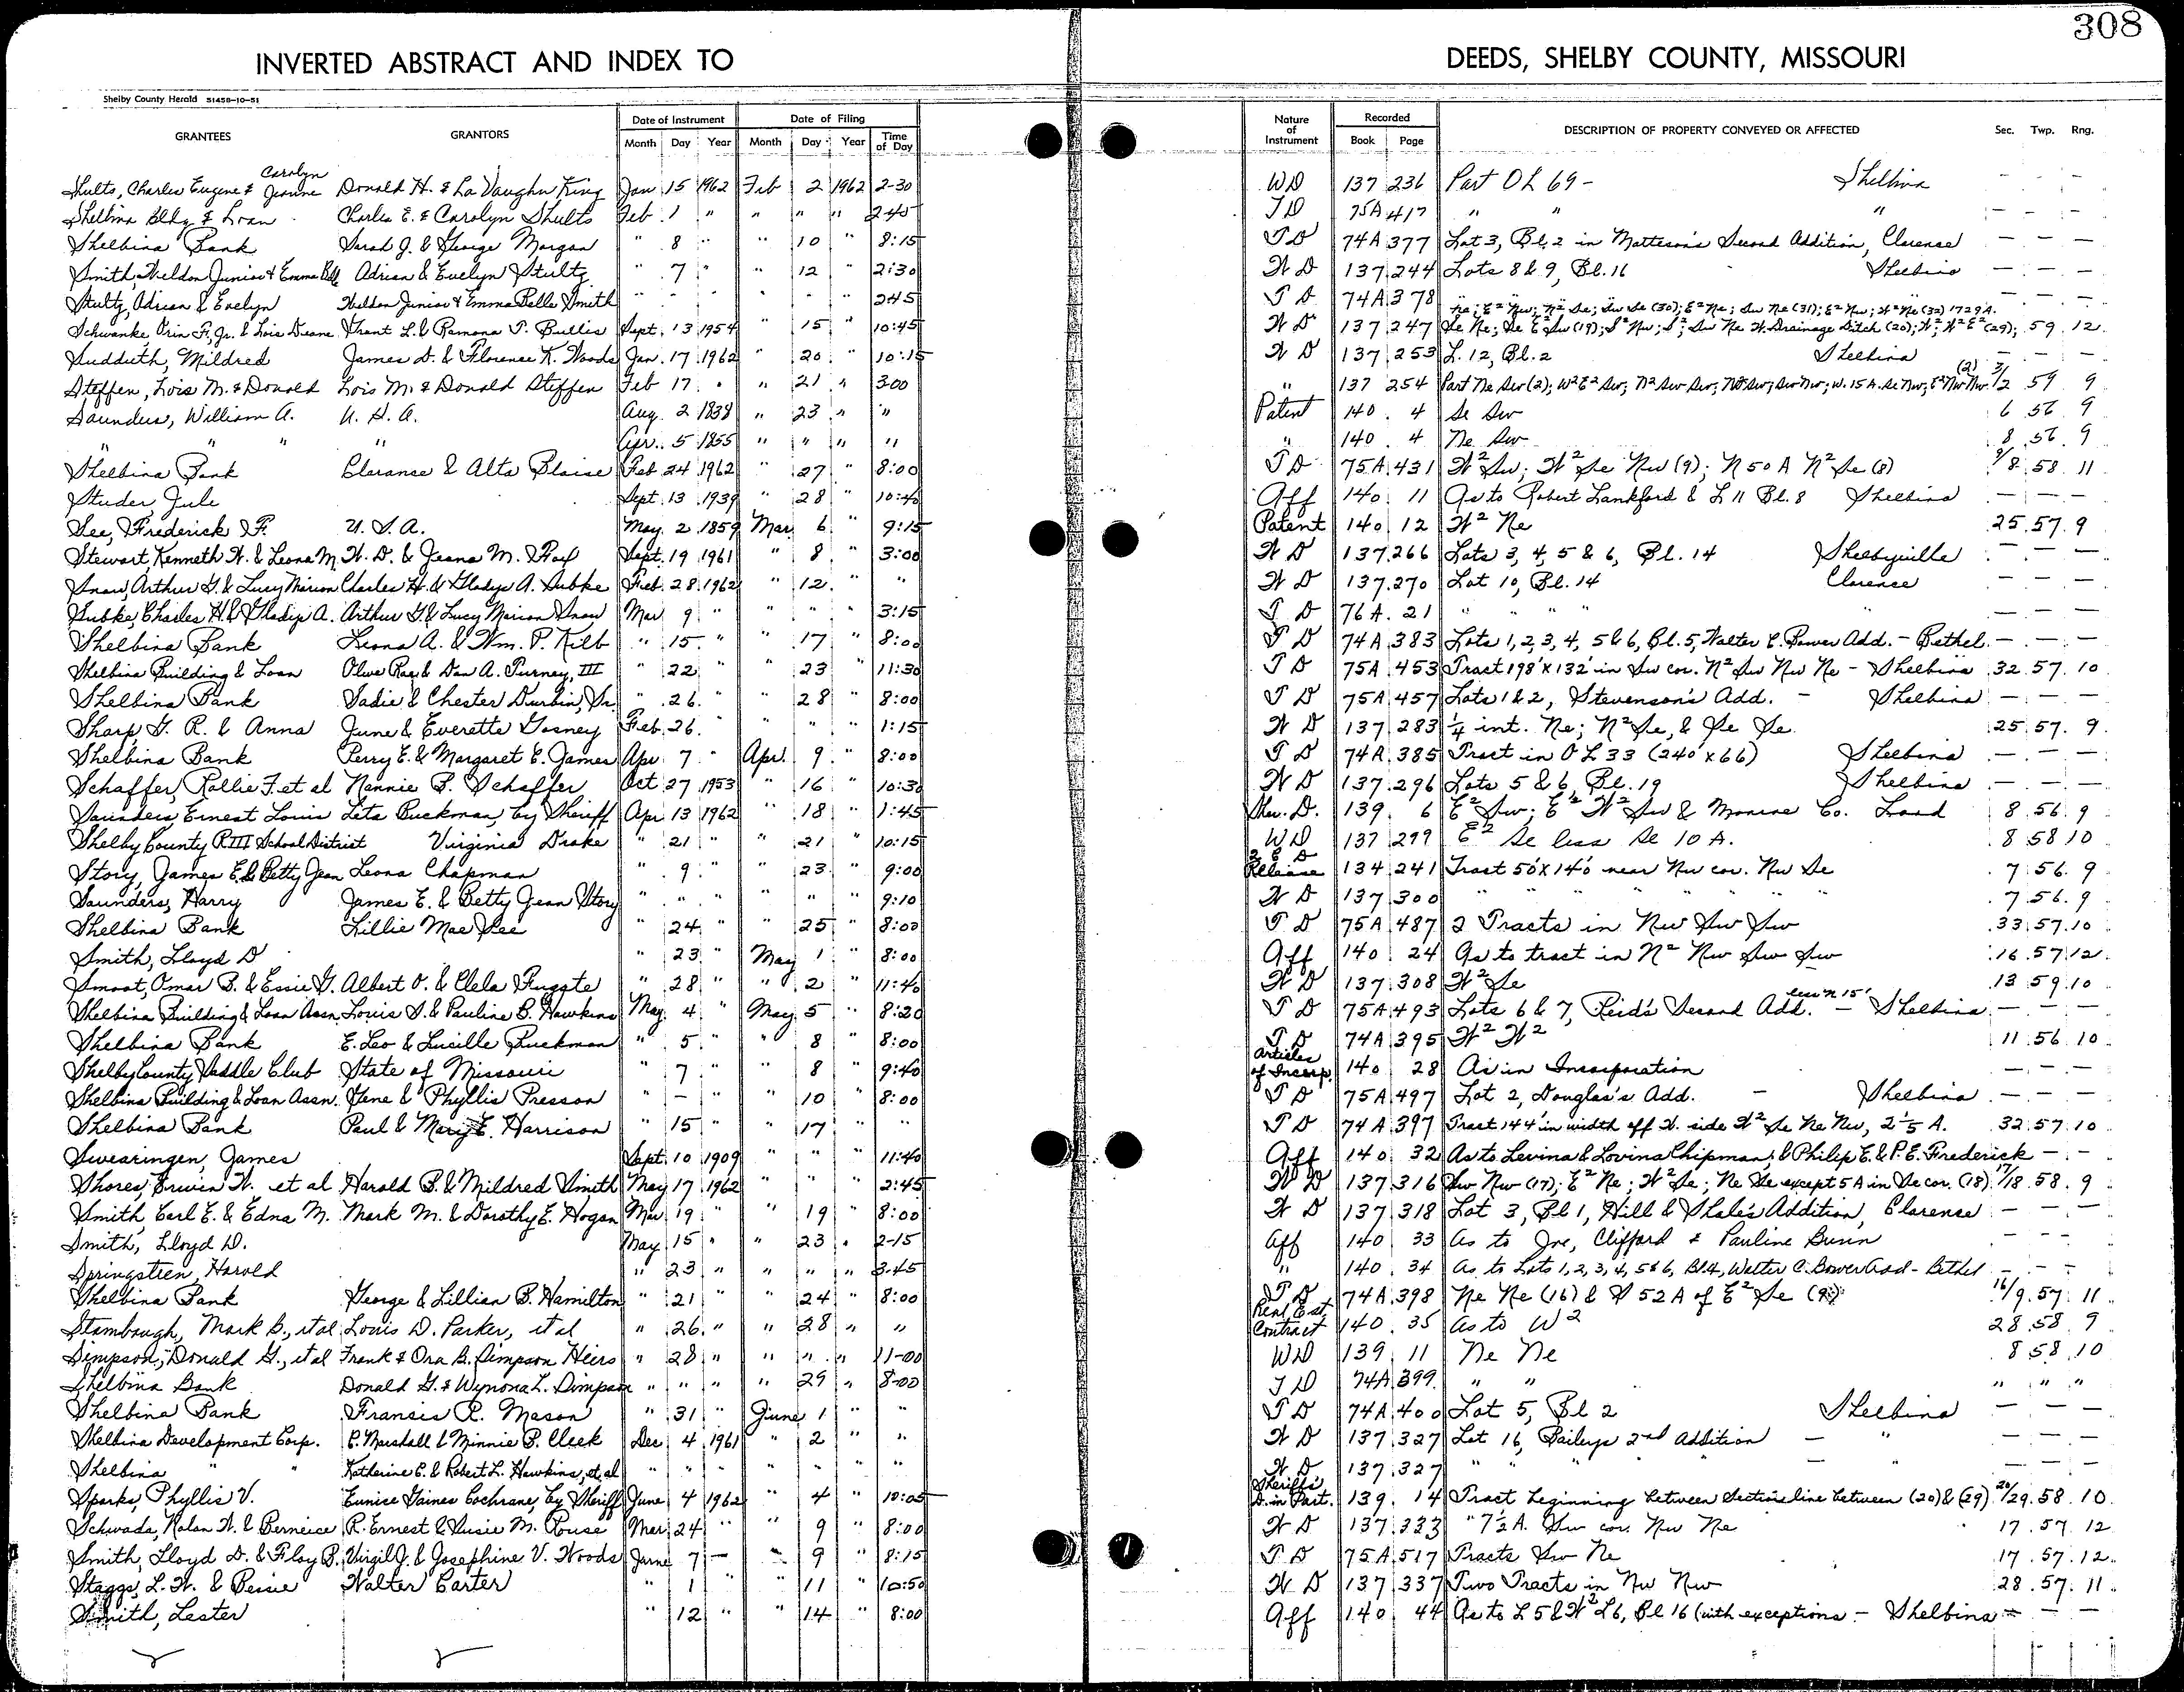 308
INVERTED ABSTRACT AND INDEX TO DEEDS, SHELBY COUNTY, MISSOURI
Shelby County Herald 51458-10-51
Date of Instrument Date of Filing Nature of Instrument Recorded
GRANTEES GRANTORS Month Day Year Month Day Year Time of Day Book Page DESCRIPTION OF PROPERTY CONVEYED OR AFFECTED Sec. Twp. Rng.
Shults, Charles Eugene & Carolyn Jeanne Donald H. & La Vaughn King Jan 15 1962 Feb 2 1962 2-30 WD 137 236 Part OL 69 - Shelbina - - -
Shelbina Bldg & Loan Charles E. & Carolyn Shults Feb 1 " " " " 2 40 TD 75A 417 " " " - - -
Shelbina Bank Sarah J. & George Morgan " 8 " " 10 " 8:15 TD 74A 377 Lot 3, Bl. 2 in Matteson's Second Addition, Clarence - - -
Smith, Weldon Junior & Emma Belle Adrian & Evelyn Stultz " 7 " " 12 " 2:30 WD 137 244 Lots 8 & 9, Bl. 16 Shelbina - - -
Stultz, Adrian & Evelyn Weldon Junior & Emma Belle Smith " " " " " " 2 45 TD 74A 378 " "
Schwanke, Orin F., Jr. & Lois Deane Grant L. & Ramona T. Bullis Sept. 13 1954 " 15 " 10:45 WD 137 247 59 12
Sudduth, Mildred James D. & Florence K. Woods Jan. 17 1962 " 20 " 10:15 WD 137 253 L. 12, Bl. 2 Shelbina - - -
Steffen, Lois M. & Donald Lois M. & Donald Steffen Feb 17 " " 21 " 3:00 " 137 254 Part Ne Sw (2); W2 E2 Sw; N2 Sw Sw; Sw Nw; W. 15 A. Se Nw; 59 9
Saunders, William A. U. S. A. Aug. 2 1838 " 23 " " Patent 140 4 Se Sw 6 56 9
" " " " Apr. 5 1855 " " " " " 140 4 Ne Sw 8 56 9
Shelbina Bank Clarance & Alta Blaise Feb 24 1962 " 27 " 8:00 TD 75A 431 W2 Sw; W2 Se Nw (9); N 50 A N2 Se (8) 9/8 58 11
Studer, Jule Sept. 13 1939 " 28 " 10:40 Aff 140 11 As to Robert Lankford & L 11 Bl. 8 Shelbina - - -
See, Frederick F. U. S. A. May 2 1859 Mar. 6 " 9:15 Patent 140 12 W2 Ne 25 57 9
Stewart, Kenneth W. & Leona M. W. D. & Jeana M. Sept. 19 1961 " 8 " 3:00 WD 137 266 Lots 3, 4, 5 & 6, Bl. 14 Shelbyville - - -
Snow, Arthur G. & Lucy Marion Charles H. & Gladys A. Subke Feb. 28 1962 " 12 " " WD 137 270 Lot 10, Bl. 14 Clarence - - -
Subke, Charles H. & Gladys A. Arthur G. & Lucy Marion Snow Mar 9 " " " " 3:15 TD 76A 21 " " " " - - -
Shelbina Bank Leona A. & Wm. P. Kilb " 15 " " 17 " 8:00 TD 74A 383 Lots 1, 2, 3, 4, 5 & 6, Bl. 5, Walter C. Bower Add. - Bethel - - -
Shelbina Building & Loan Olive Rae & Dan A. Turney, III " 22 " 23 11:30 TD 75A 453 Tract 198' x 132' in Sw cor. N2 Sw Nw Ne - Shelbina 32 57 10
Shelbina Bank Sadie & Chester Durbin, Sr. " 26 " " 28 " 8:00 TD 75A 457 Lots 1 & 2, Stevenson's Add. - Shelbina - - -
Sharp, G. R. & Anna June & Everette Gosney Feb. 26 " " " 1:15 WD 137 283 1/4 int. Ne; N2 Se, & Se Se 25 57 9
Shelbina Bank Perry E. & Margaret E. James Apr 7 " Apr. 9 " 8:00 TD 74A 385 Tract in OL 33 (240' x 66) Shelbina - - -
Schaffer, Rollie F. et al Nannie B. Schaffer Oct 27 1953 " 16 " 10:30 WD 137 296 Lots 5 & 6, Bl. 19 Shelbina - - -
Saunders, Ernest Louis Leta Buckman, by Sheriff Apr 13 1962 " 18 " 1:45 Sher. D. 139 6 E2 Sw; E2 W2 Sw & Monroe Co. Land 8 56 9
Shelby County R III School District Virginia Drake " 21 " " 21 " 10:15 WD 137 299 E2 Se less Se 10 A. 8 58 10
Story, James E. & Betty Jean Leona Chapman " 9 " " 23 " 9:00 Release 134 241 Tract 50' x 140' near Nw cor. Nw Se 7 56 9
Saunders, Harry James E. & Betty Jean Story " " " " " " 9:10 WD 137 300 " " " " " 7 56 9
Shelbina Bank Lillie Mae Lee " 24 " " 25 " 8:00 TD 75A 487 2 Tracts in Nw Sw Sw 33 57 10
Smith, Lloyd D " 23 " May 1 " 8:00 Aff 140 24 As to tract in N2 Nw Sw Sw 16 57 12
Smoot, Omar B. & Essie G. Albert O. & Clela Fugate " 28 " " 2 " 11:40 WD 137 308 W2 Se 13 59 10
Shelbina Building & Loan Assn. Louis S. & Pauline B. Hawkins May 4 " May 5 " 8:20 TD 75A 493 Lots 6 & 7, less n 15' Reid's Second Add. - Shelbina - - -
Shelbina Bank E. Leo & Lucille Buckman " 5 " " 8 " 8:00 TD 74A 395 W2 W2 11 56 10
Shelby County Saddle Club State of Missouri " 7 " " 8 " 9:40 Articles of Incorp. 140 28 As in Incorporation - - -
Shelbina Building & Loan Assn. Gene & Phyllis Presson " - " 10 " 8:00 TD 75A 497 Lot 2, Douglas's Add. - Shelbina - - -
Shelbina Bank Paul & Mary E. Harrison " 15 " " 17 " " TD 74A 397 Tract 144' in width off W. side W2 Se Ne Nw, 2 1/5 A. 32 57 10
Swearingen, James Sept. 10 1909 " " " 11:40 Aff 140 32 As to Levina & Lovina Chipman, & Philip E. & P. E. Frederick - - -
Shores, Erwin W. et al Harold B. & Mildred Smith May 17 1962 " " " 2:45 WD 137 316 Sw Nw (17); E2 Ne; W2 Se; Ne Se except 5 A in Se cor. (18) 17/18 58 9
Smith, Earl E. & Edna M. Mark M. & Dorothy E. Hogan Mar 19 " " 19 " 8:00 WD 137 318 Lot 3, Bl 1, Hill & Shale's Addition, Clarence - - -
Smith, Lloyd D. May 15 " " 23 " 2-15 Aff 140 33 As to Joe, Clifford & Pauline Bunn - - -
Springstien, Harold " 23 " " " " 3:45 " 140 34 As to Lots 1, 2, 3, 4, 5 & 6, Bl 4, Walter C. Bower Add - Bethel - - -
Shelbina Bank George & Lillian B. Hamilton " 21 " 24 " 8:00 TD 74A 398 Ne Ne (16) & S 52 A of E2 Se (9) 16/9 57 11
Stambaugh, Mark B., et al Louis D. Parker, et al " 26 " " 28 " " Real Est. Contract 140 35 As to W2 28 58 9
Simpson, Donald G., et al Frank & Ora B. Simpson Heirs " 28 " " " " 11-00 WD 139 11 Ne Ne 8 58 10
Shelbina Bank Donald G. & Wynona L. Simpson " " " " 29 " 8-00 TD 74A 399 " " " " "
Shelbina Bank Francis R. Mason " 31 " June 1 " " TD 74A 400 Lot 5, Bl 2 Shelbina - - -
Shelbina Development Corp. P. Marshall & Minnie B. Cleek Dec 4 1961 " 2 " " WD 137 327 Lot 16, Baileys 2nd Addition - " - - -
Shelbina " " Katherine C. & Robert L. Hawkins, et al " " " " " " " WD 137 327 " " " " - " - - -
Sparks, Phyllis V. Eunice Gaines Cochrane, by Sheriff June 4 1962 " 4 " 10:05 Sheriff's D. in Part. 139 14 Tract beginning between Section line between (20) & (29) 20/29 58 10
Schwada, Nolan W. & Berneice R. Ernest & Susie M. Rouse Mar 24 " " 9 " 8:00 WD 137 333 " 7 1/2 A. Sw cor. Nw Ne 17 57 12
Smith, Lloyd D. & Floy B. Virgil J. & Josephine V. Woods June 7 - " 9 " 8:15 TD 75A 517 Tracts Sw Ne 17 57 12
Staggs, L. W. & Bessie Walter Carter " 1 " 11 " 10:50 WD 137 337 Two Tracts in Nw Nw 28 57 11
Smith, Lester " 12 " " 14 " 8:00 Aff 140 44 As to L 5 & W2 L6, Bl 16 (with exceptions - Shelbina - - -